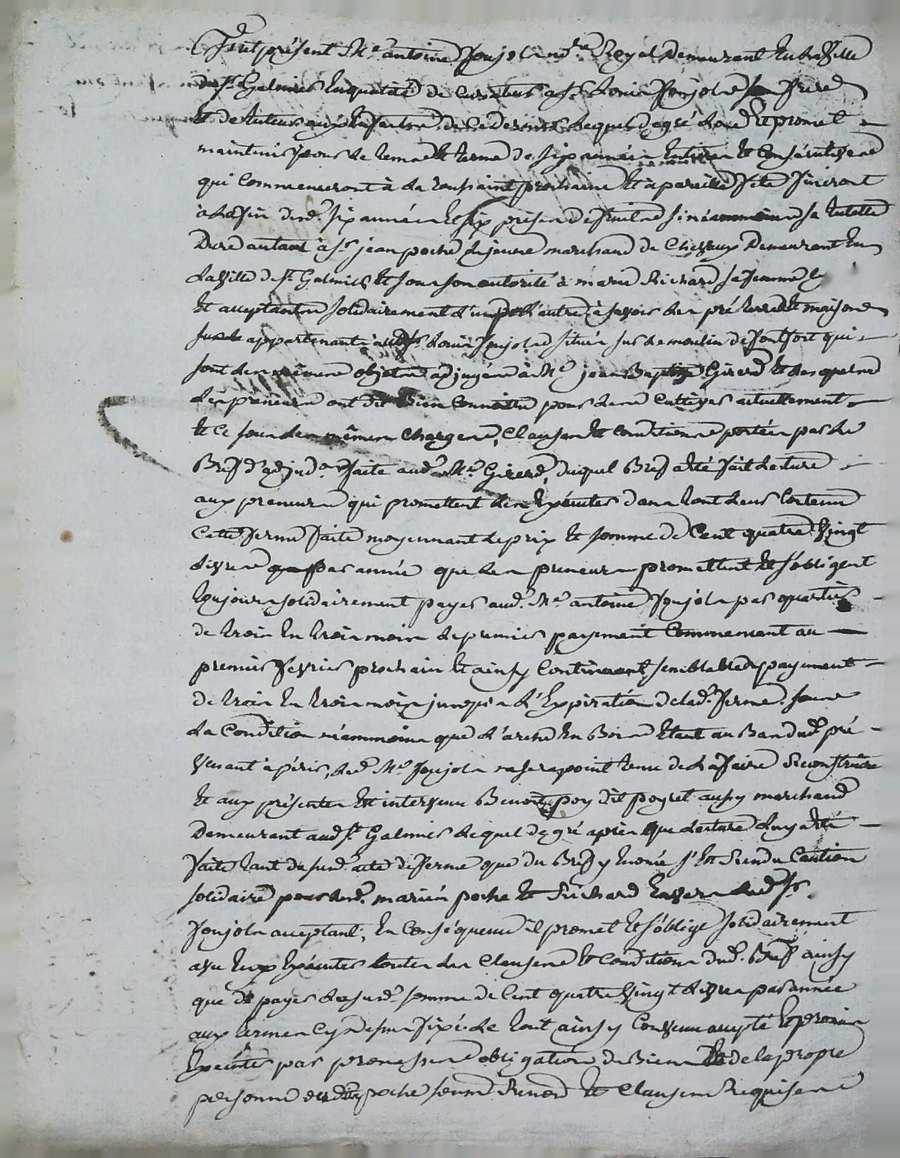 Fut présent Me antoine Joujols nre Royal Demeurant En la ville
de st Galmier En qualité de Curateur a sr Louis Joujols son frere
et de Tuteur aux Enfants de  lequel de gré  Et promet
maintenir pour le tems et terme de six années Entieres Et Consécutives
qui Commenceront à la toussaint prochaine Et à pareille fête finiront
a la fin desd. six années Et six prises de fruits  neammoins sa tutelle
Dure autant à sr jean poche le jeune marchand de Chevaux Demeurant En
la ville de st Galmier Et sous son autorité à marie Richard sa femme
Et acceptants solidairement l'un pour l'autre, à savoir les prés  Et maisons
 appartenants auds Louis Joujols situés sur le moulin de fontfort qui
sont les mêmes objets adjugés à Me jean Baptiste Girard Et lesquels
dts preneurs ont dit Bien Connoitre pour les Cultiver actuellement
Et Ce sous les mêmes Charges, Clauses Et Conditions portées par le
Bref d'adjudon faite aud. Me Girard, duquel Bref a été fait lecture
aux preneurs qui promettent de l'Exécuter dans tout leur Contenu
Cette ferme faite moyennant le prix Et somme de Cent quatre Vingt
livres par année que les preneurs promettent Et s'obligent
toujours solidairement payer aud. Me antoine Joujols par quartier
de trois En trois mois le premier payement Commencant au
premier fevrier prochain Et ainsy Continuant semblables payements
de trois En trois mois jusqu'a l'Expiration de lad. ferme. sous
la Condition néammoins que l'arche En Bois Etant au Bas dud. pré
Venant à périr, led. Me Joujols ne sera point tenu de la faire Reconstruire
Et aux présentes Est intervenu Benoit poy dit peyret aussy marchand
Demeurant aud. st Galmier lequel de gré après que lecture luy a été
faite tant du susd. acte de ferme que du Bref y Enoncé s'Est Rendu Caution
solidaire pour lesd. mariés poche Et Richard Envers led. sr
Joujols acceptant, En Conséquence il promet Et s'oblige solidairement
avec Eux Exécuter toutes les Clauses Et Conditions dud. Bref ainsy
que de payer la susd. somme de Cent quatre Vingt livres par année
aux termes Cy dessus fixés le tout ainsy Convenu accepté Et promis
Exécuter par promesses obligation de Biens Et de la propre
personne dud. poche  Et Clauses Requises